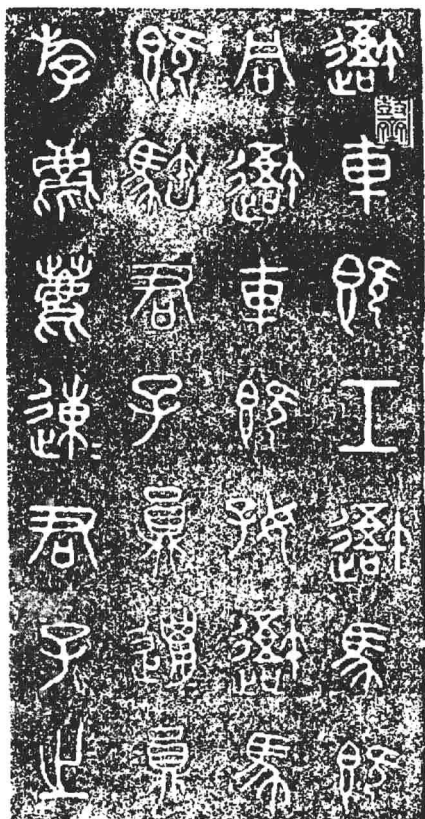 吾車既工吾馬既
同吾車既好吾馬
既君子員邋員
斿麀鹿速=君子之